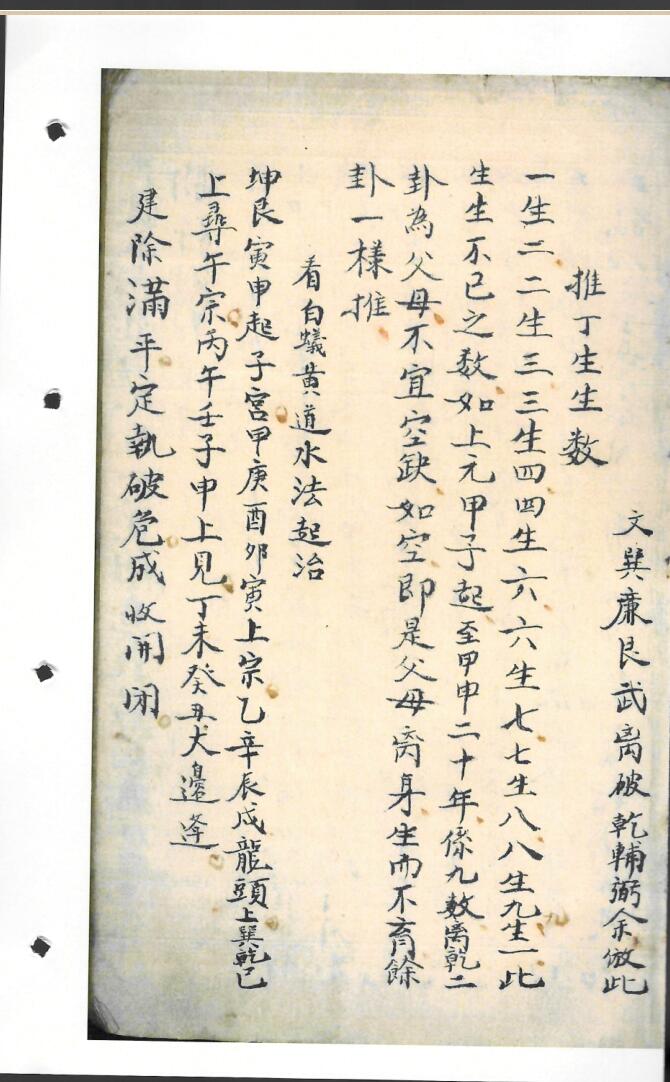 文巽廉艮武离破乾輔弼余倣此
推丁生生数
一生二二生三三生四四生六六生七七生八八生九九生一此
生生不已之数如上元甲子起至甲申二十年係九数离乾二
卦為父母不宜空缺如空即是父母离身生而不育餘
卦一樣推
看白蟻黄道水法起治
坤艮寅申起子宮甲庚酉卯寅上宗乙辛辰戌龍頭上巽乾巳
上尋午宗丙午壬子申上見丁未癸丑犬邊逢
建除滿平定執破危成收開闭